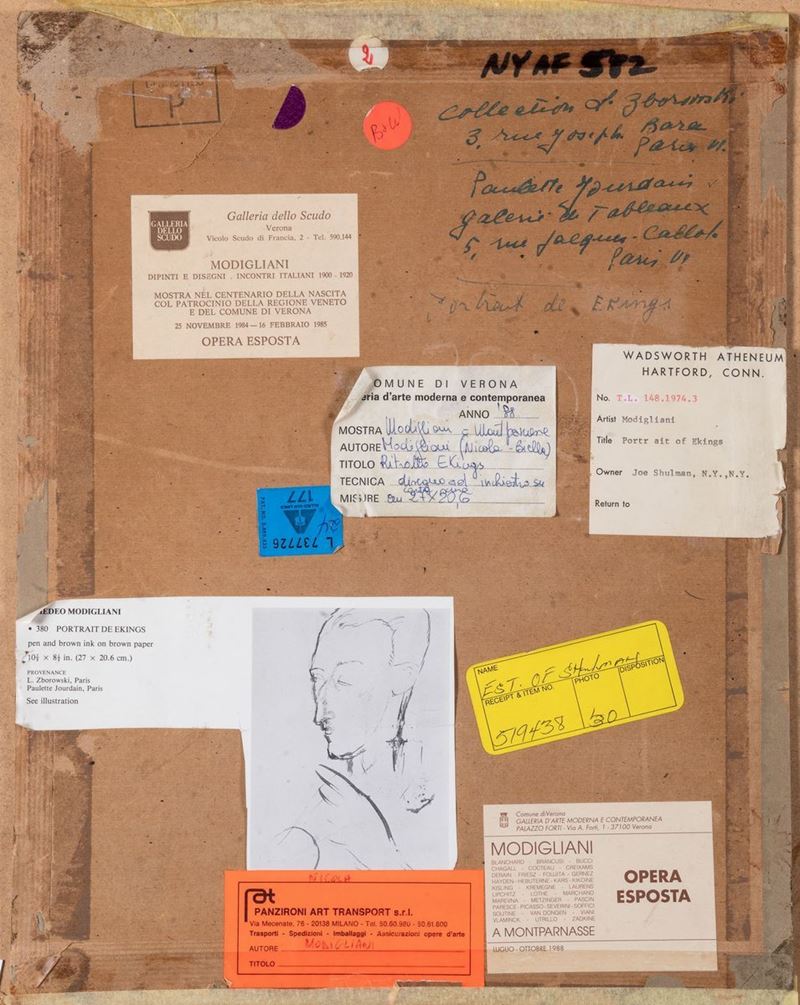 2
NYAF 582
BoW
Collection L. Zborowski
3, rue Joseph Bara
Paris VI.
Paulette Jourdain
galerie de Tableaux
5, rue Jacques-Callot
Paris VI
Portrait de Ekings
GALLERIA
DELLO
SCUDO
Galleria dello Scudo
Verona
Vicolo Scudo di Francia, 2 - Tel. 590.144
MODIGLIANI
DIPINTI E DISEGNI . INCONTRI ITALIANI 1900 - 1920
MOSTRA NEL CENTENARIO DELLA NASCITA
COL PATROCINIO DELLA REGIONE VENETO
E DEL COMUNE DI VERONA
25 NOVEMBRE 1984 — 16 FEBBRAIO 1985
OPERA ESPOSTA
WADSWORTH ATHENEUM
HARTFORD, CONN.
No. T.L. 148.1974.3
Artist Modigliani
Title Portr ait of Ekings
Owner Joe Shulman, N.Y.,N.Y.
Return to
OMUNE DI VERONA
eria d'arte moderna e contemporanea
ANNO '88
MOSTRA Modigliani a Montparnasse
AUTORE Modigliani (Nicola - Biella)
TITOLO Ritratto Ekings
TECNICA disegno ad inchiostro su
carta
MISURE cm 27×20,6
L 737726
177
EDEO MODIGLIANI
• 380 PORTRAIT DE EKINGS
pen and brown ink on brown paper
10½ × 8⅛ in. (27 × 20.6 cm.)
PROVENANCE
L. Zborowski, Paris
Paulette Jourdain, Paris
See illustration
NAME
EST. OF SHULMAN
RECEIPT & ITEM NO. PHOTO DISPOSITION
519438 20
NICOLA
PANZIRONI ART TRANSPORT s.r.l.
Via Mecenate, 76 - 20138 MILANO - Tel. 50.60.980 - 50.61.800
Trasporti - Spedizioni - Imballaggi - Assicurazioni opere d'arte
AUTORE MODIGLIANI
TITOLO
Comune di Verona
GALLERIA D'ARTE MODERNA E CONTEMPORANEA
PALAZZO FORTI - Via A. Forti, 1 - 37100 Verona
MODIGLIANI
BLANCHARD - BRANCUSI - BUCCI
CHAGALL - COCTEAU - CREIXAMS
DERAIN - FRIESZ - FOUJITA - GERNEZ
HAYDEN - HEBUTERNE - KARS - KIKOINE
KISLING - KREMEGNE - LAURENS
LIPCHITZ - LOTHE - MARCHAND
MAREVNA - METZINGER - PASCIN
PARESCE - PICASSO - SEVERINI - SOFFICI
SOUTINE - VAN DONGEN - VIANI
VLAMINCK - UTRILLO - ZADKINE
A MONTPARNASSE
LUGLIO - OTTOBRE 1988
OPERA
ESPOSTA